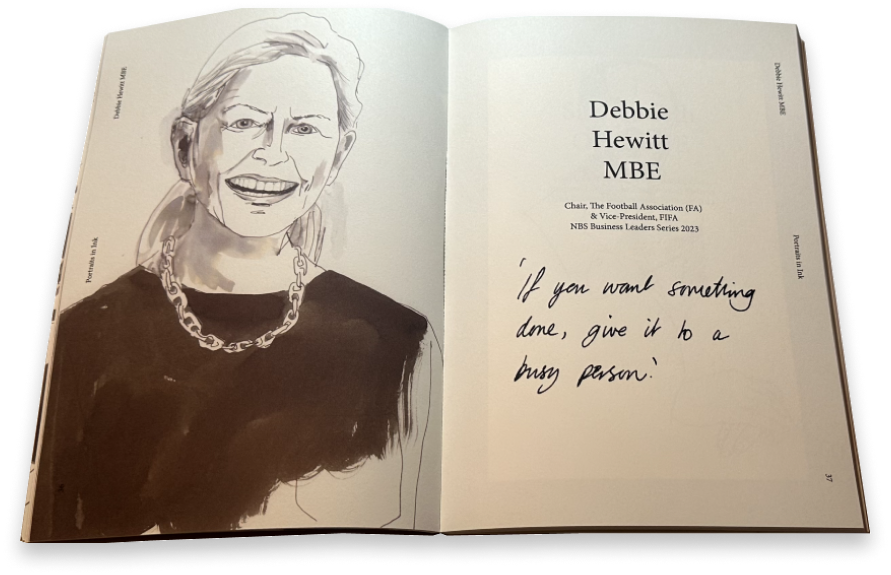 Debbie Hewitt MBE
Portraits in Ink
Debbie
Hewitt
MBE
Chair, The Football Association (FA)
& Vice-President, FIFA
NBS Business Leaders Series 2023
'If you want something
done, give it to a
busy person.'
Debbie Hewitt MBE
Portraits in Ink
37